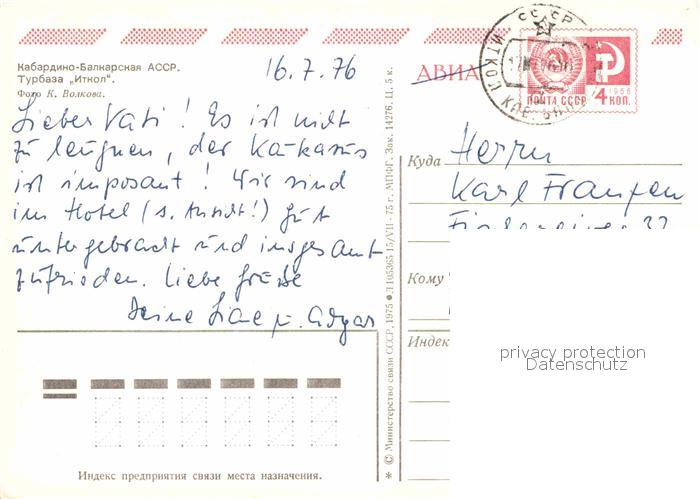 Кабардино-Балкарская АССР.
Турбаза „Иткол".
Фото К. Волкова.
16.7.76
АВИА
СССР
ПОЧТА СССР
1966
4 КОП.
Lieber Vati! Es ist nicht
zu leugnen, der Kaukasus
ist imposant! Wir sind
im Hotel (s. Ansicht!) gut
untergebracht und insgesamt
zufrieden. Liebe Grüße
Deine u.
Куда
Herrn
Karl Franzen
Кому
Индекс
privacy protection
Datenschutz
Индекс предприятия связи места назначения.
* © Министерство связи СССР, 1975 ● Л 105365 15/VII - 75 г., МПФГ. Зак. 14276, Ц. 5 к.